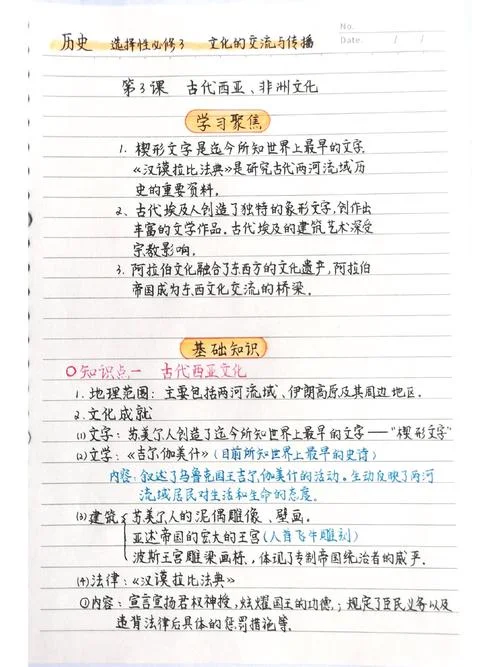 No.
Date. / /
历史 选择性必修3 文化的交流与传播
第3课 古代西亚、非洲文化
学习聚焦
1. 楔形文字是迄今所知世界上最早的文字,
《汉谟拉比法典》是研究古代两河流域历
史的重要资料。
2、古代埃及人创造了独特的象形文字,创作出
丰富的文学作品。古代埃及的建筑艺术深受
宗教影响。
3. 阿拉伯文化融合了东西方的文化遗产,阿拉伯
帝国成为东西文化交流的桥梁。
基础知识
○知识点一 古代西亚文化
1. 地理范围: 主要包括两河流域、伊朗高原及其周边地区.
2. 文化成就
(1)文字: 苏美尔人创造了迄今所知世界上最早的文字——"楔形文字"
(2)文学:《吉尔伽美什》(目前所知世界上最早的史诗)
内容: 叙述了乌鲁克国王吉尔伽美什的活动。生动反映了两河
流域居民对生活和生命的态度。
(3)建筑 苏美尔人的泥偶雕像、壁画。
亚述帝国的宏大的王宫(人首飞牛雕刻)
波斯王宫雕梁画栋, 体现了专制帝国统治者的威严。
(4)法律:《汉谟拉比法典》
①内容: 宣言宣扬君权神授, 炫耀国王的功德; 规定了臣民义务以及
违背法律后具体的惩罚措施等.